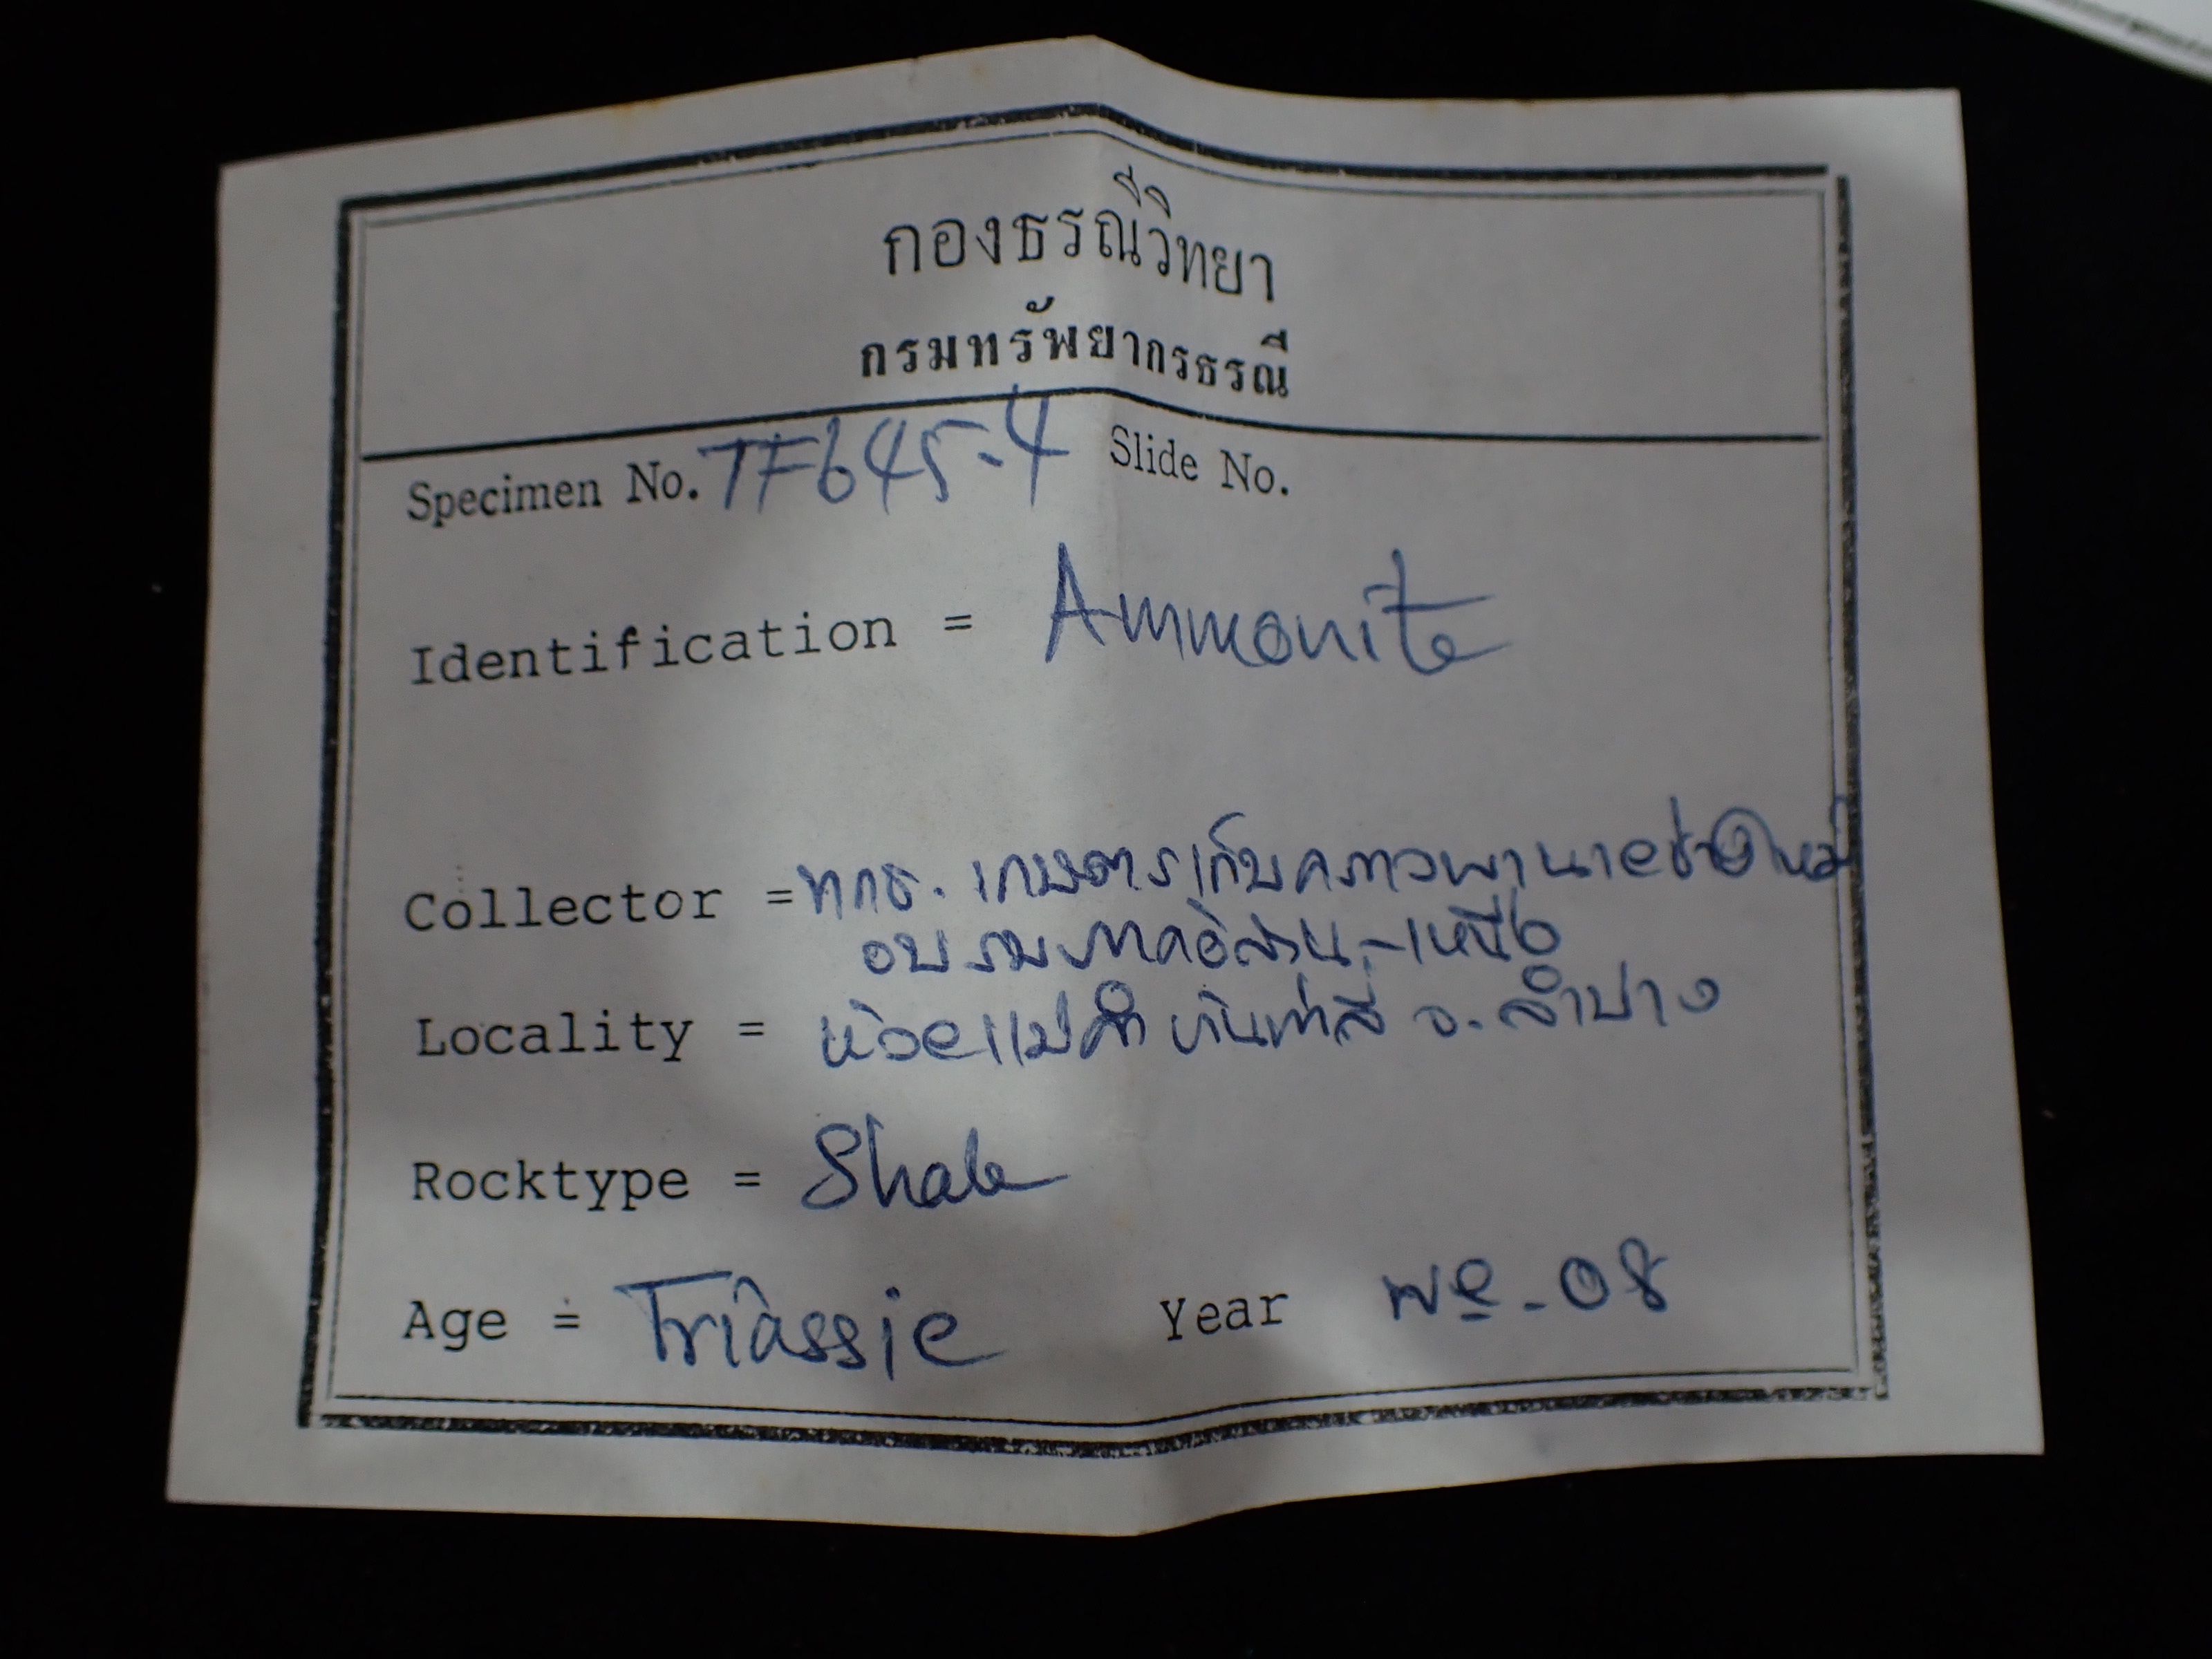 กองธรณีวิทยา
กรมทรัพยากรธรณี
Specimen No. TF645-4 Slide No.
Identification = Ammonite
Collector = ทกธ. เกษตรเก็บคราวพานายช่างใหม่
อบรมภาคอีสาน-เหนือ
Locality = ห้วยแม่ จ.ลำปาง
Rocktype = Shale
Age = Triassic Year พย-08